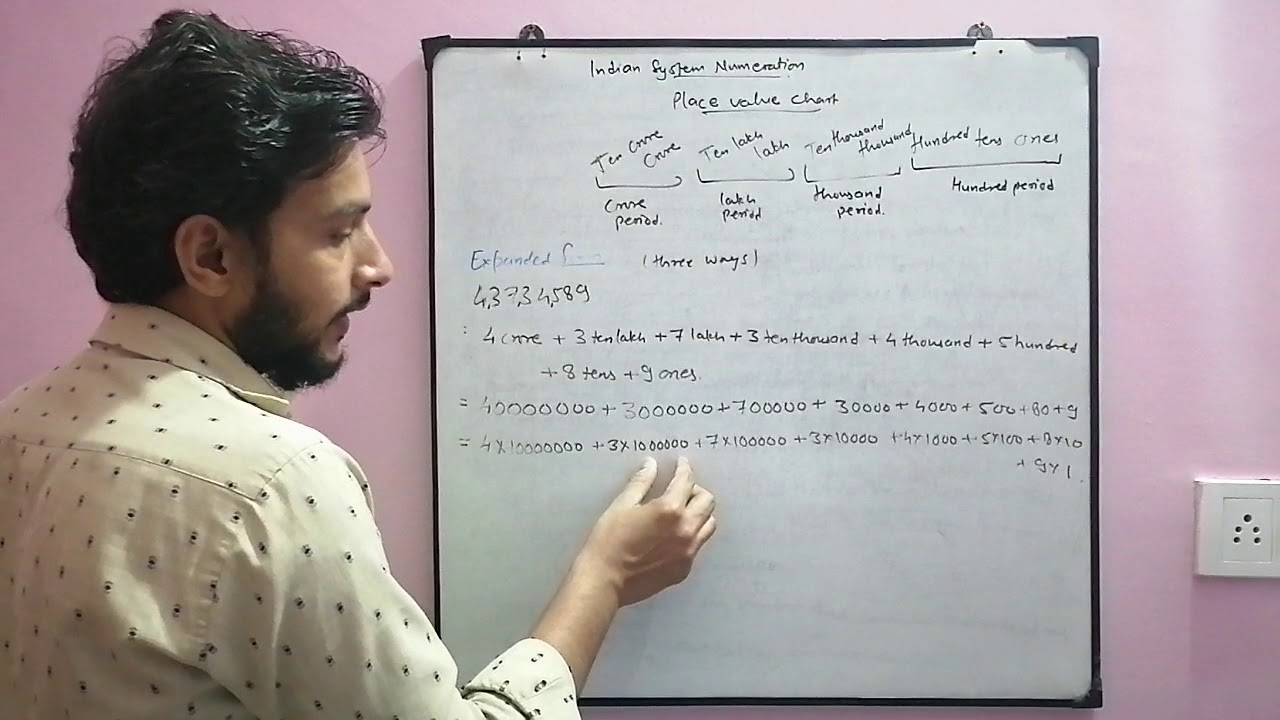 Indian System Numeration
Place value chart
Ten Crore Crore Ten lakh lakh Ten thousand thousand Hundred tens ones
Crore period. lakh period thousand period. Hundred period
Expanded (three ways)
4,37,34,589
: 4 crore + 3 ten lakh + 7 lakh + 3 ten thousand + 4 thousand + 5 hundred
+ 8 tens + 9 ones.
= 40000000 + 3000000 + 700000 + 30000 + 4000 + 500 + 80 + 9
= 4×10000000 + 3×1000000 + 7×100000 + 3×10000 + 4×1000 + 5×100 + 8×10
+ 9×1.